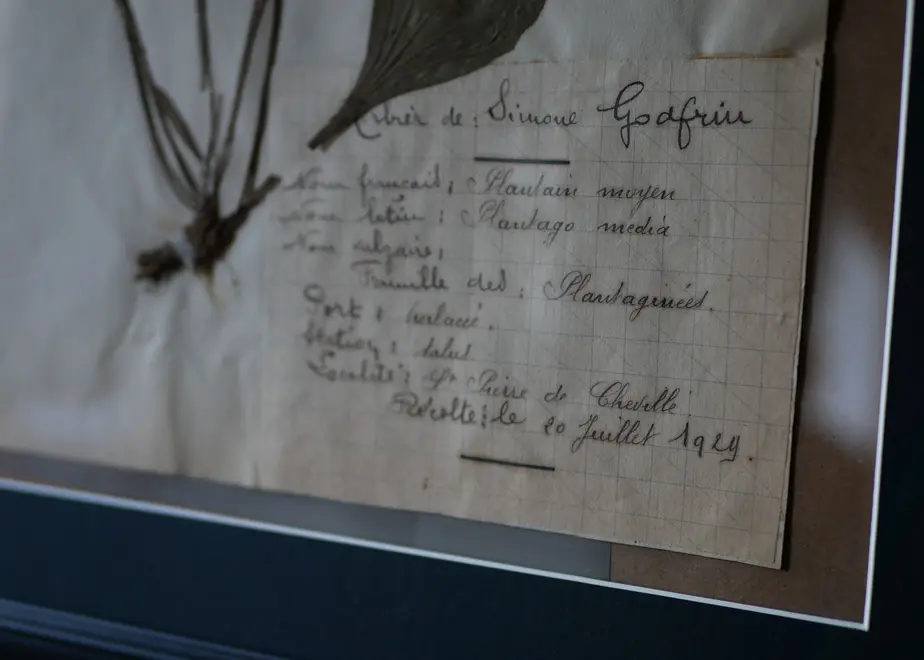 Herbier de : Simone Godfrin
Nom français : Plantain moyen
Nom latin : Plantago media
Nom vulgaire :
Famille des : Plantaginées.
Port : herbacé.
Station : talus
Localité : St Pierre de Cheville
Récolté : le 20 Juillet 1929.